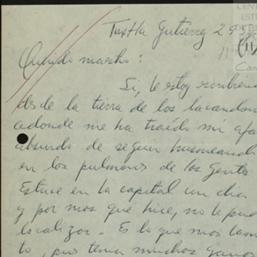 Tuxtla Gutierrez 29
CEN
EST
(11
Querido marcho:
Si, te estoy escribien
desde la tierra de los lacandon
adonde me ha traído mi afa
absurdo de seguir husmeando
en los pulmones de las gente
Estuve en la capital un dia
y por mas que hice, no te pue
localizar. Es lo que mas lamen
to, pues tenia muchas ganas